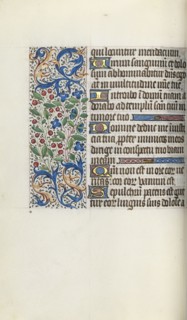 qui loquuntur mendacium.
Virum sanguinum et dolo
sum abhominabitur dns ego
at in multitudine mie tue
Introibo in domum tuam a
dorabo ad templum sanctum
timore tuo
Domine deduc me iusti
cia tua ppter inimicos meos
dirige in conspectu tuo viam
meam
Qm non est in ore eor ve
ritas cor eor vanum est
Sepulchrum patens est gut
tur eor linguis suis dolose a